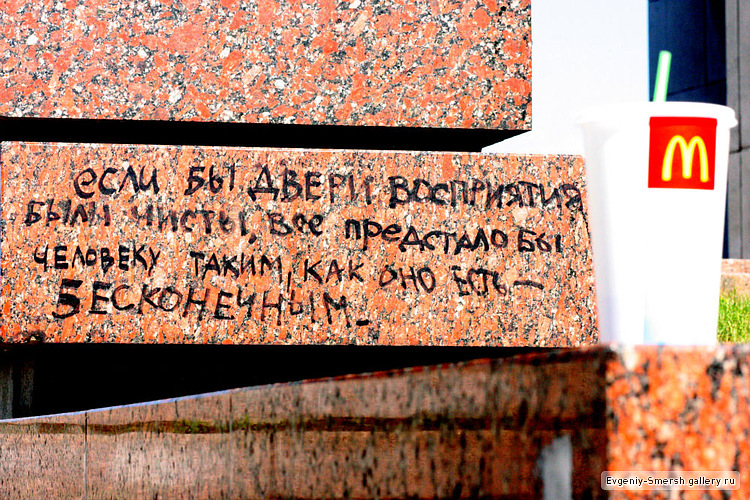 если бы двери восприятия
были чисты, все предстало бы
человеку таким, как оно есть —
бесконечным.
M
Evgeniy-Smersh gallery ru